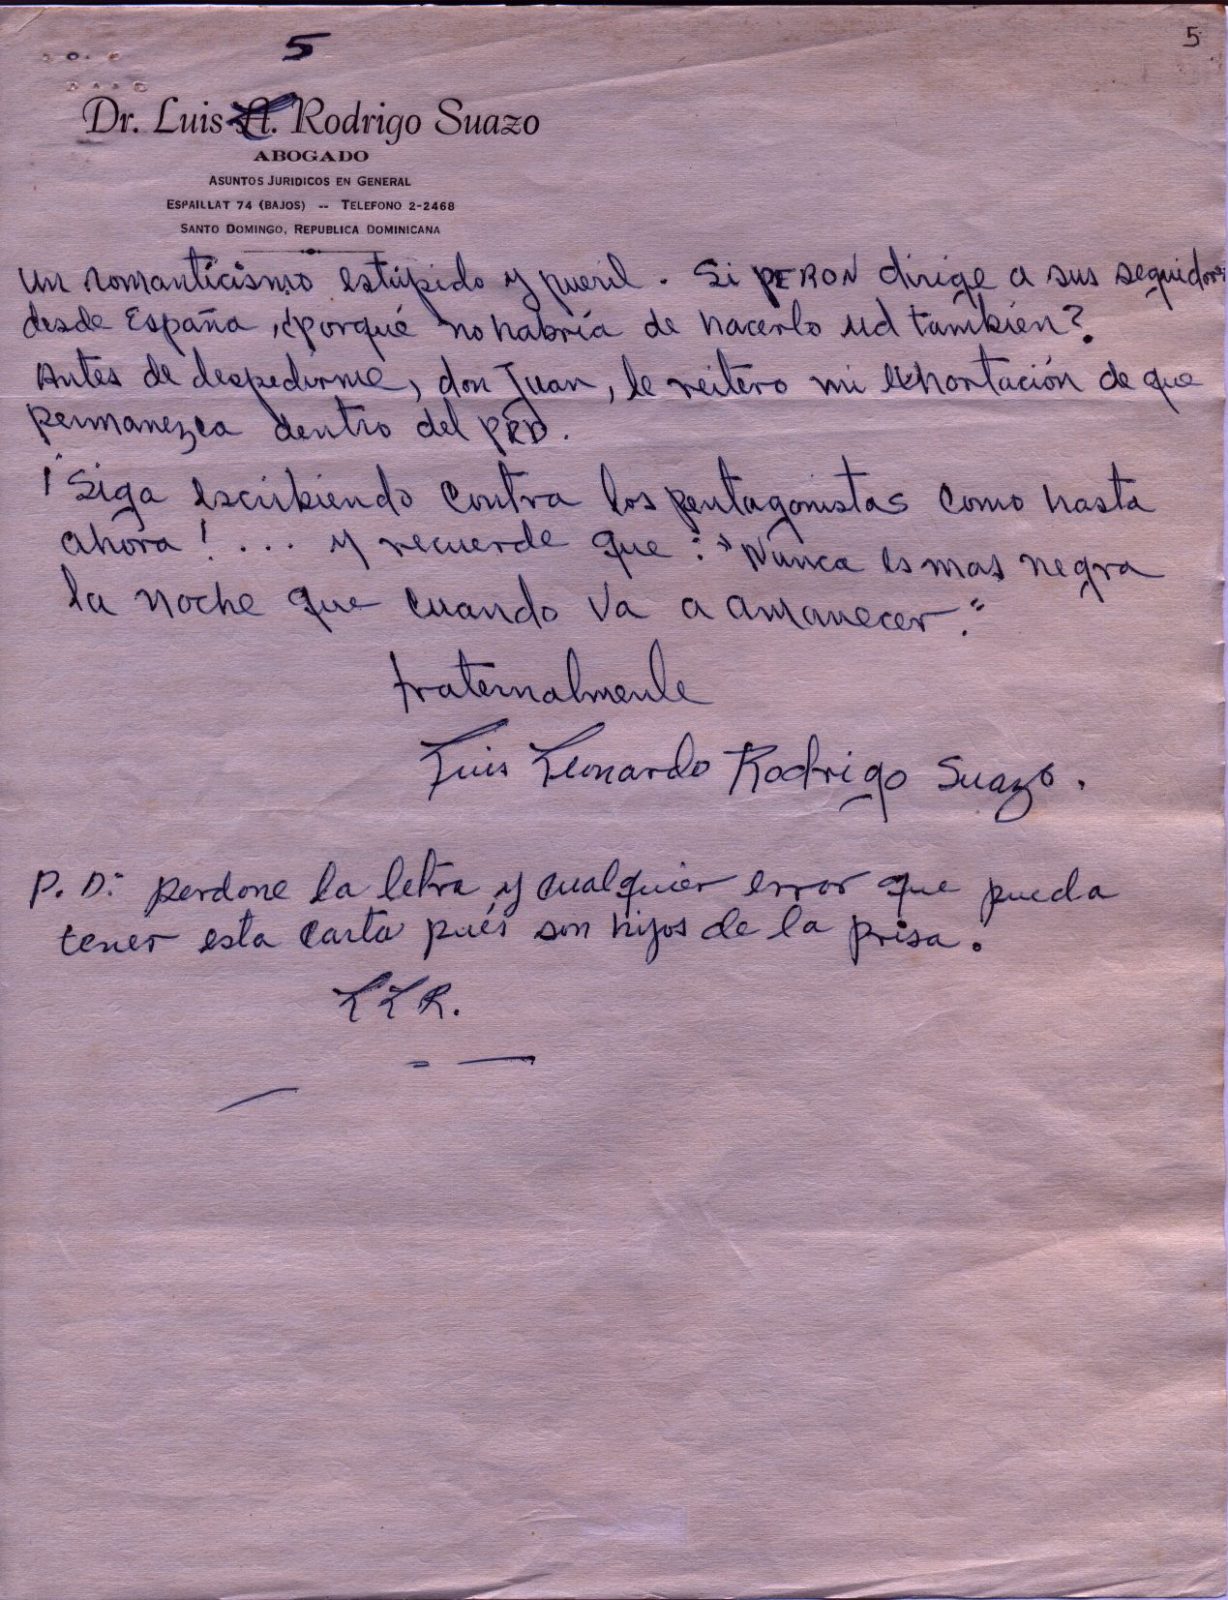 5
5
Dr. Luis A. Rodrigo Suazo
ABOGADO
ASUNTOS JURIDICOS EN GENERAL
ESPAILLAT 74 (BAJOS) -- TELEFONO 2-2468
SANTO DOMINGO, REPUBLICA DOMINICANA
un romanticismo estúpido y pueril. Si PERON dirige a sus seguidores
desde España, ¿porqué no habría de hacerlo Ud también?
Antes de despedirme, don Juan, le reitero mi exhortación de que
permanezca dentro del PRD.
¡Siga escribiendo contra los pentagonistas como hasta
ahora!... y recuerde que: "Nunca es mas negra
la noche que cuando va a amanecer."
fraternalmente
Luis Leonardo Rodrigo Suazo.
P.D: perdone la letra y cualquier error que pueda
tener esta carta pués son hijos de la prisa.
LLR.